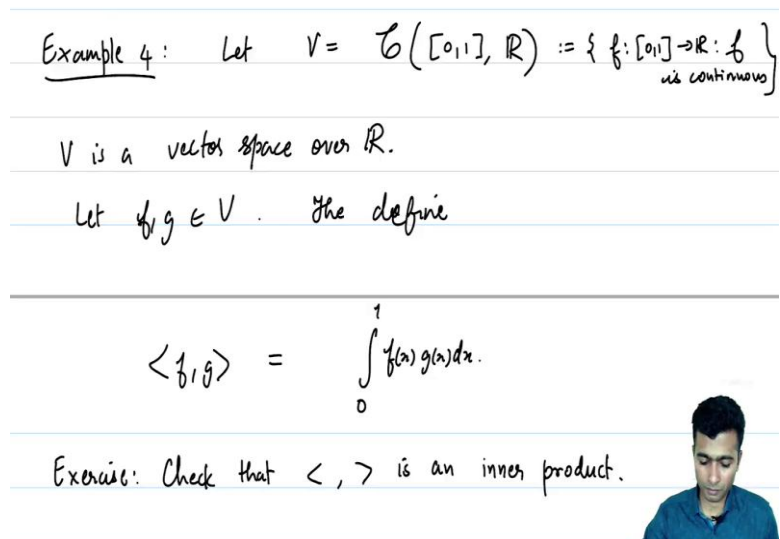 Example 4: Let V = C([0,1], ℝ) := { f: [0,1] → ℝ : f
is continuous }
V is a vector space over ℝ.
Let f, g ∈ V. The define
<f, g> = ∫₀¹ f(x) g(x) dx.
Exercise: Check that < , > is an inner product.